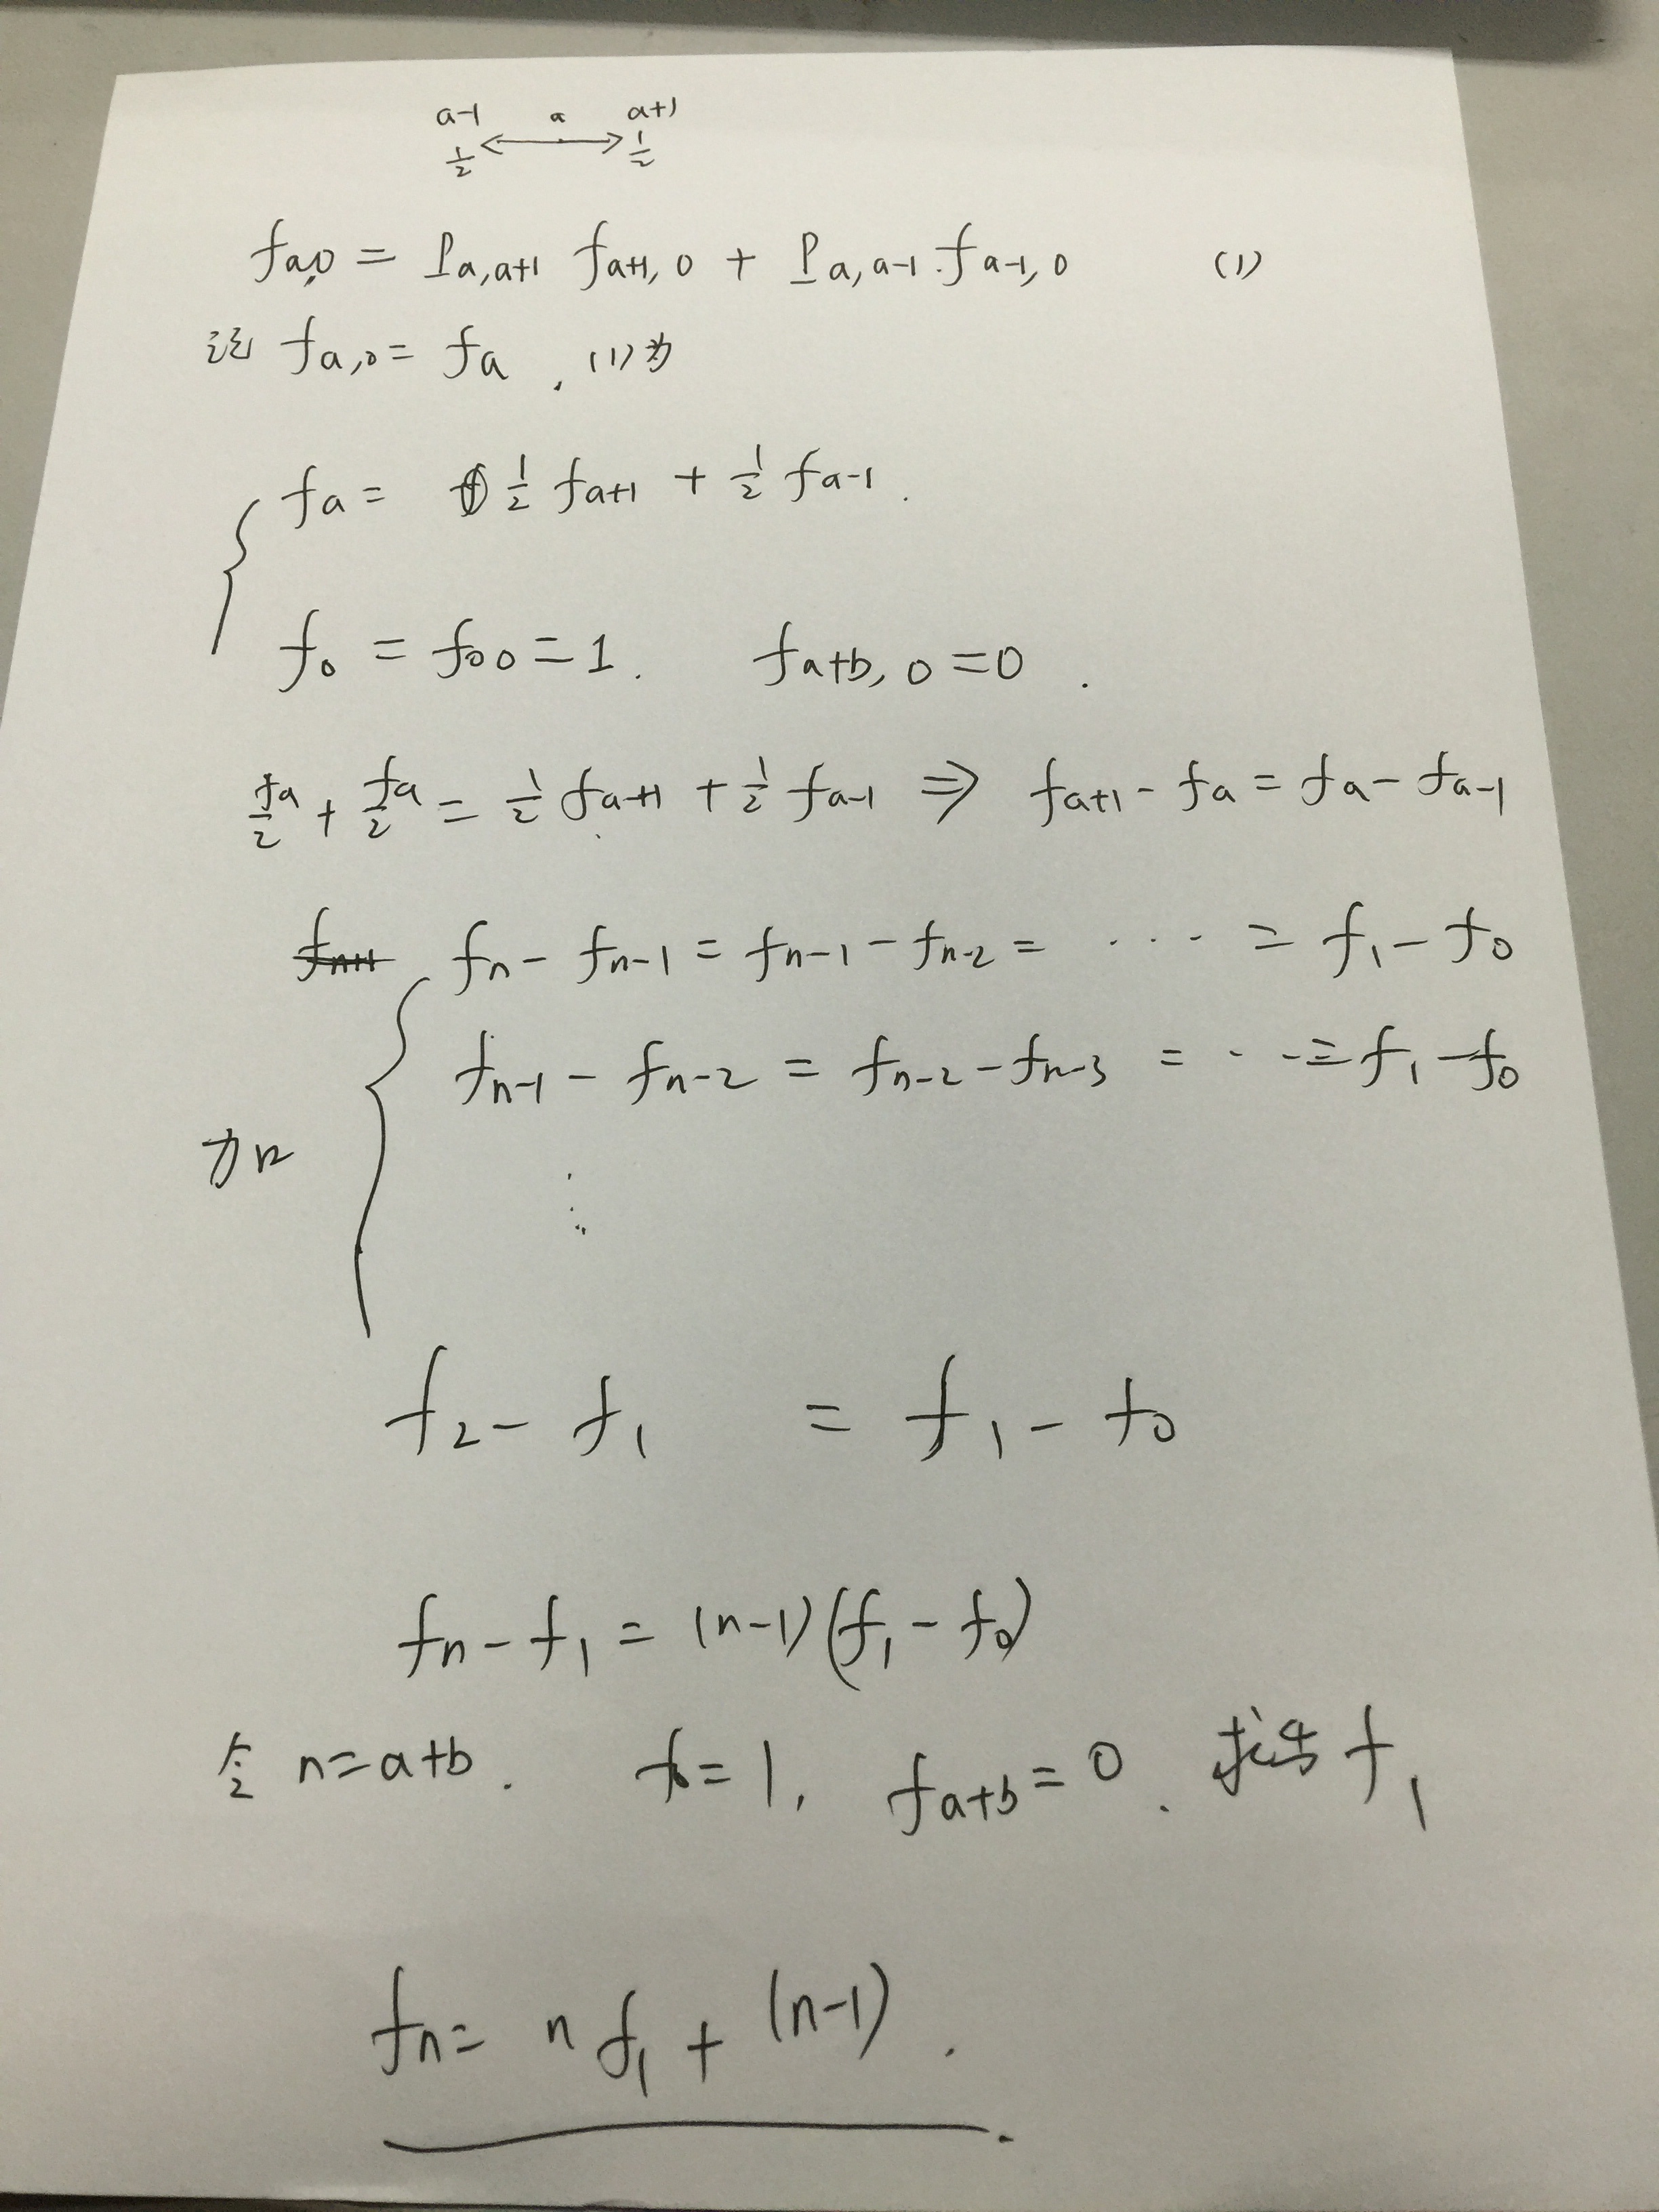 a-1 a a+1
1/2 ⟷ 1/2
f_{a,0} = P_{a,a+1} f_{a+1,0} + P_{a,a-1} · f_{a-1,0} (1)
记 f_{a,0} = f_a , (1)为
f_a = 1/2 f_{a+1} + 1/2 f_{a-1} .
f_0 = f_{00} = 1 . f_{a+b,0} = 0 .
f_a/2 + f_a/2 = 1/2 f_{a+1} + 1/2 f_{a-1} ⇒ f_{a+1} - f_a = f_a - f_{a-1}
f_{n+1} f_n - f_{n-1} = f_{n-1} - f_{n-2} = ···· = f_1 - f_0
f_{n-1} - f_{n-2} = f_{n-2} - f_{n-3} = ··· = f_1 - f_0
加
⋮
f_2 - f_1 = f_1 - f_0
f_n - f_1 = (n-1)(f_1 - f_0)
令 n=a+b . f_0=1, f_{a+b}=0 . 求出 f_1
f_n = n f_1 + (n-1) .